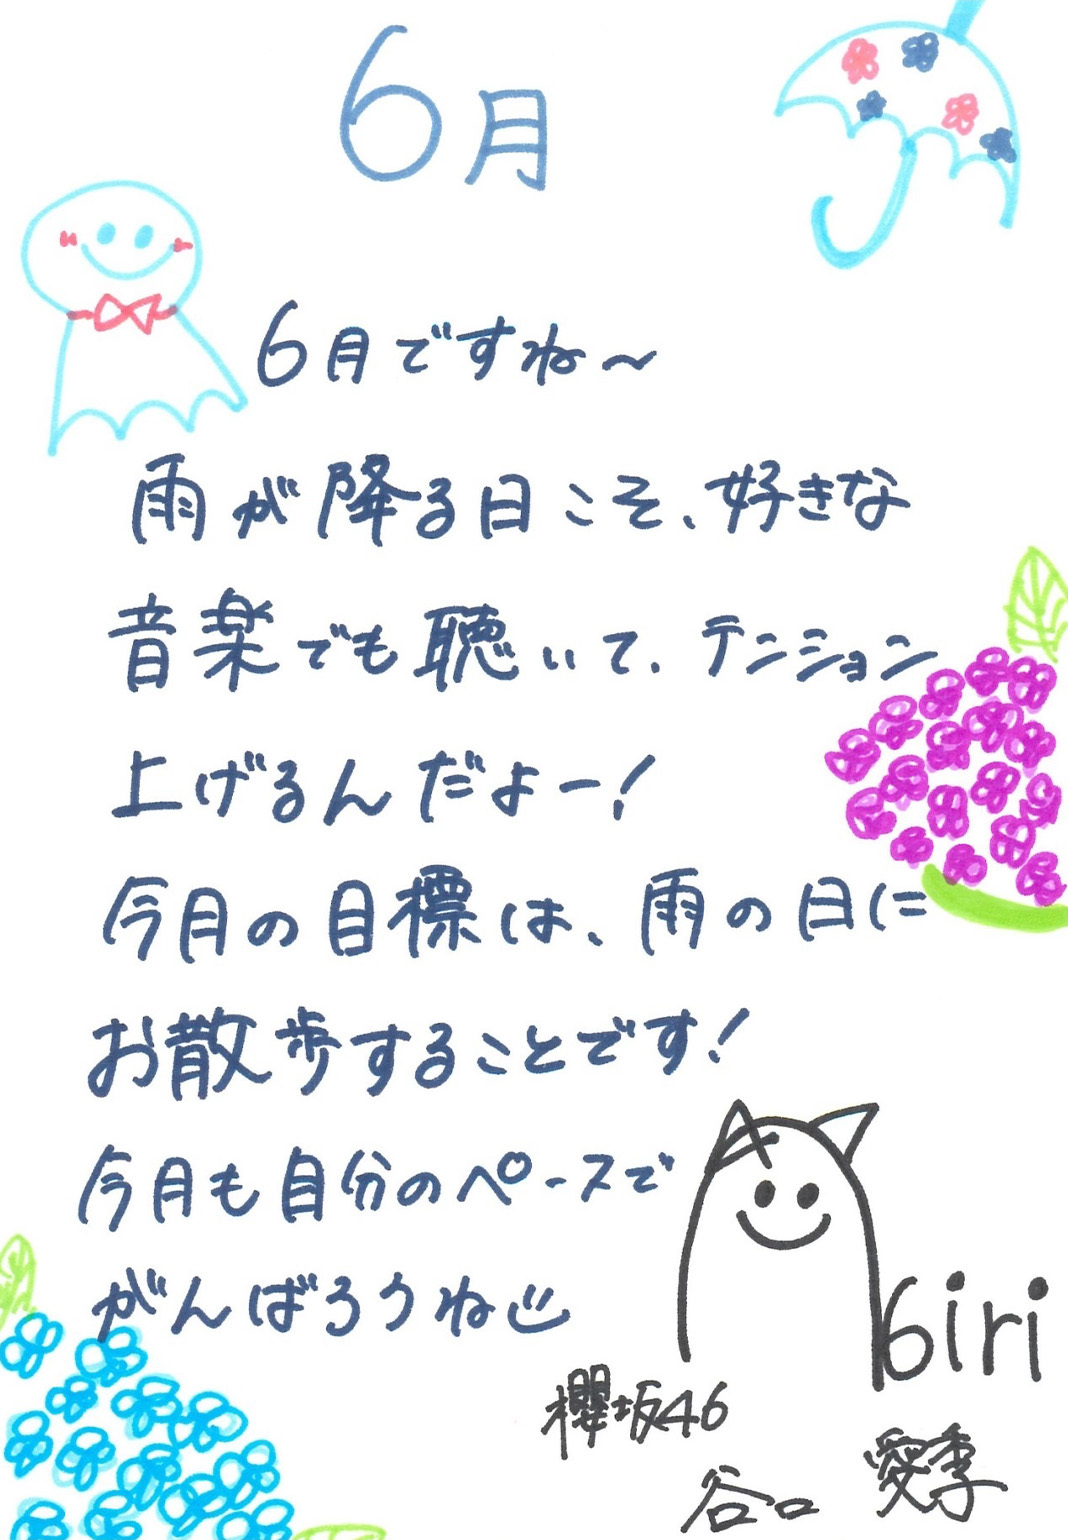 6月
6月ですね〜
雨が降る日こそ、好きな
音楽でも聴いて、テンション
上げるんだよー!
今月の目標は、雨の日に
お散歩することです!
今月も自分のペースで
がんばろうね
6iri
櫻坂46
谷口 愛季